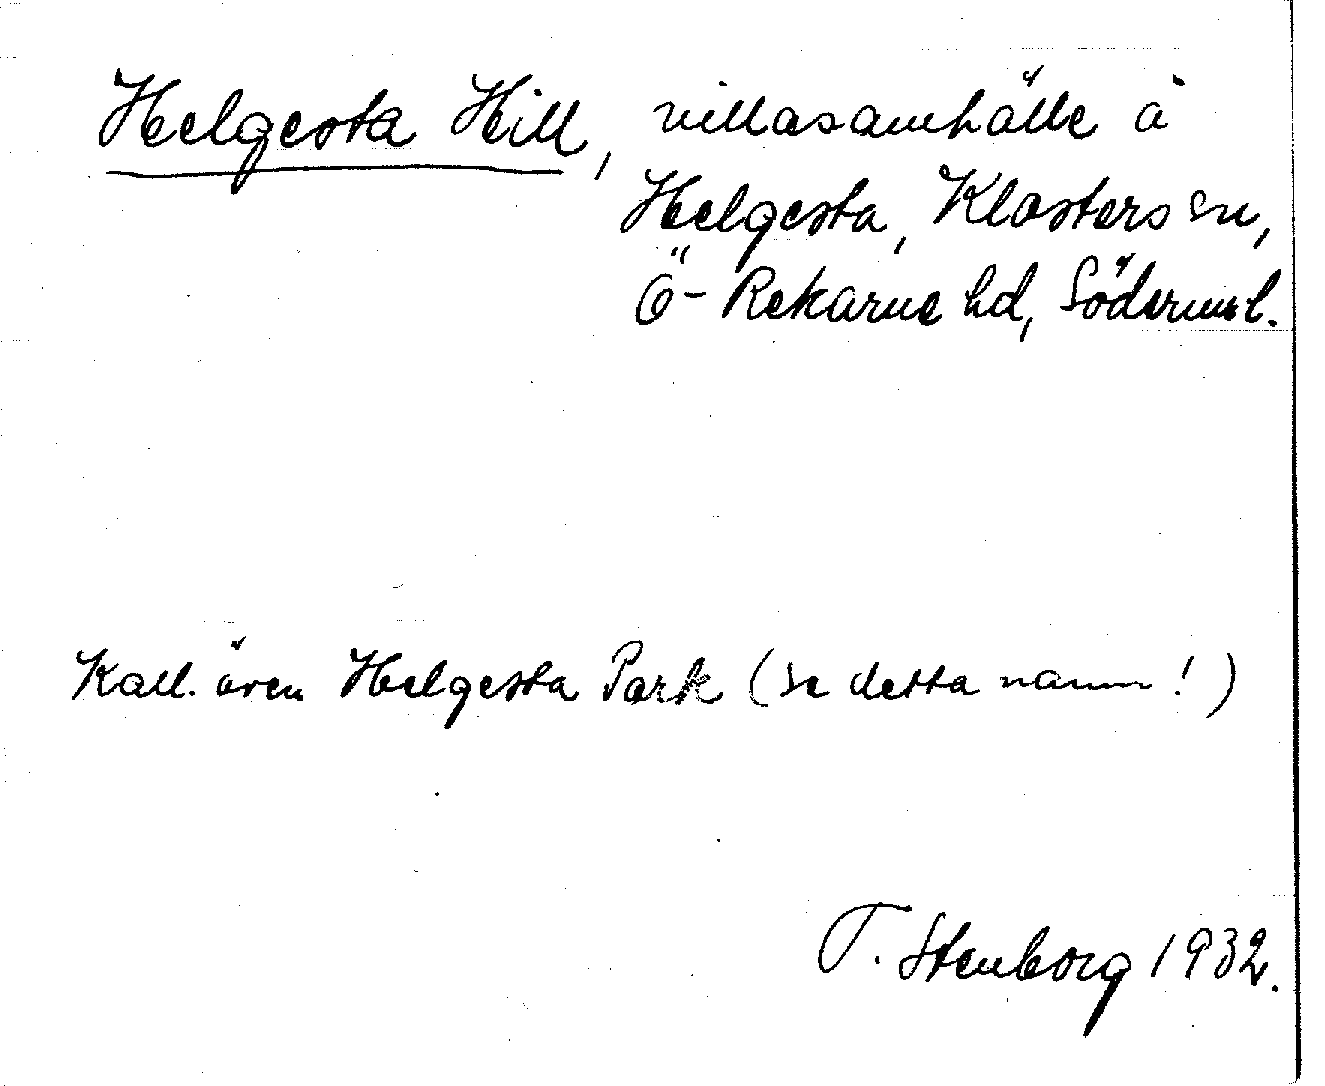 Helgesta Hill, villasamhälle å
Helgesta, Klosters sn,
Ö-Rekarne hd, Söderml.
Kall. även Helgesta Park (se detta namn!)
T. Stenborg 1932.